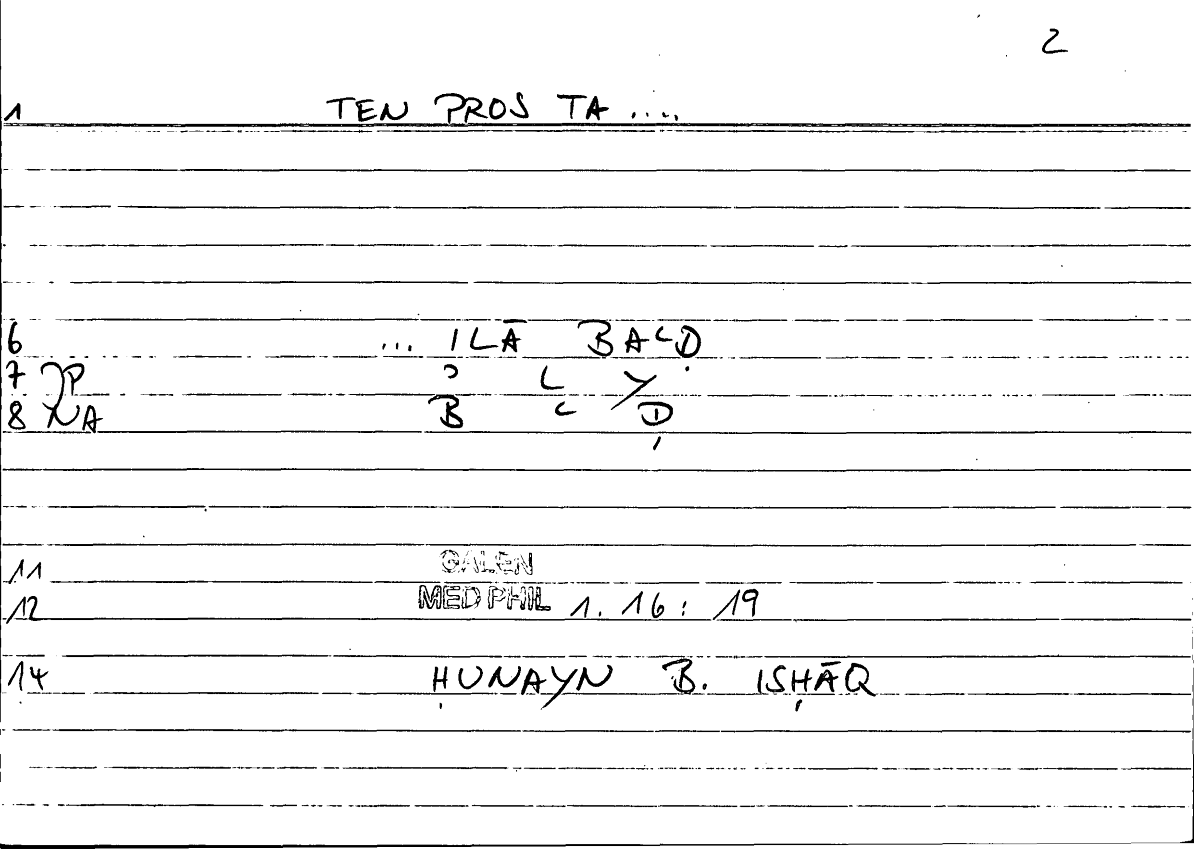 2
1 TEN PROS TA ....
6 ... ILĀ BAʿḌ
7 JP ʾ L Y
8 NA B ʿ Ḍ
11 GALEN
12 MED PHIL 1. 16 : 19
14 ḤUNAYN B. ISḤĀQ